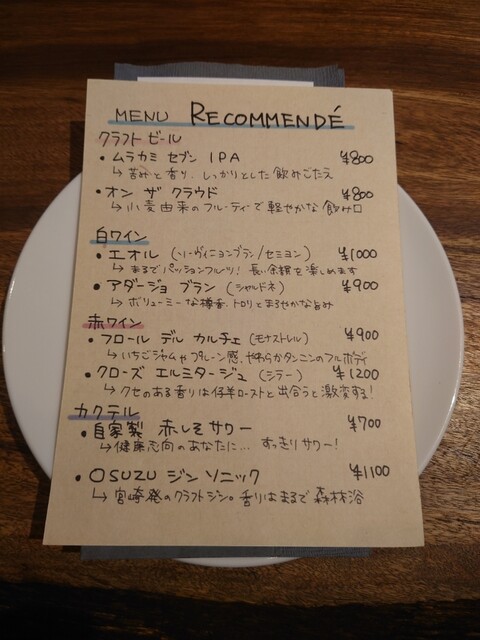 MENU RECOMMENDÉ
クラフトビール
・ムラカミ セブン IPA ¥800
↳ 苦みと香り、しっかりとした飲みごたえ
・オン ザ クラウド ¥800
↳ 小麦由来のフルーティで軽やかな飲み口
白ワイン
・エオル (ソーヴィニヨンブラン/セミヨン) ¥1000
↳ まるでパッションフルーツ! 長い余韻を楽しめます
・アダージョ ブラン (シャルドネ) ¥900
↳ ボリューミーな樽香、トロリとまろやかな旨み
赤ワイン
・フロール デル カルチェ (モナストレル) ¥900
↳ いちごジャムやプルーン感、やわらかタンニンのフルボディ
・クローズ エルミタージュ (シラー) ¥1200
↳ クセのある香りは仔羊ローストと出合うと激変する!
カクテル
・自家製 赤しそサワー ¥700
↳ 健康志向のあなたに… すっきりサワー!
・OSUZU ジン ソニック ¥1100
↳ 宮崎発のクラフトジン。香りはまるで森林浴